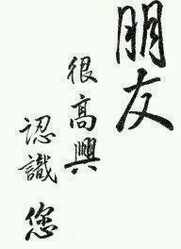 朋友
很高興
認識您